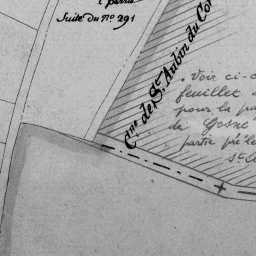 Suite du Nº 291
Cne de St Aubin du Cor
Voir ci-c
feuillet
pour la pa
de Gosne
partie prél
St A